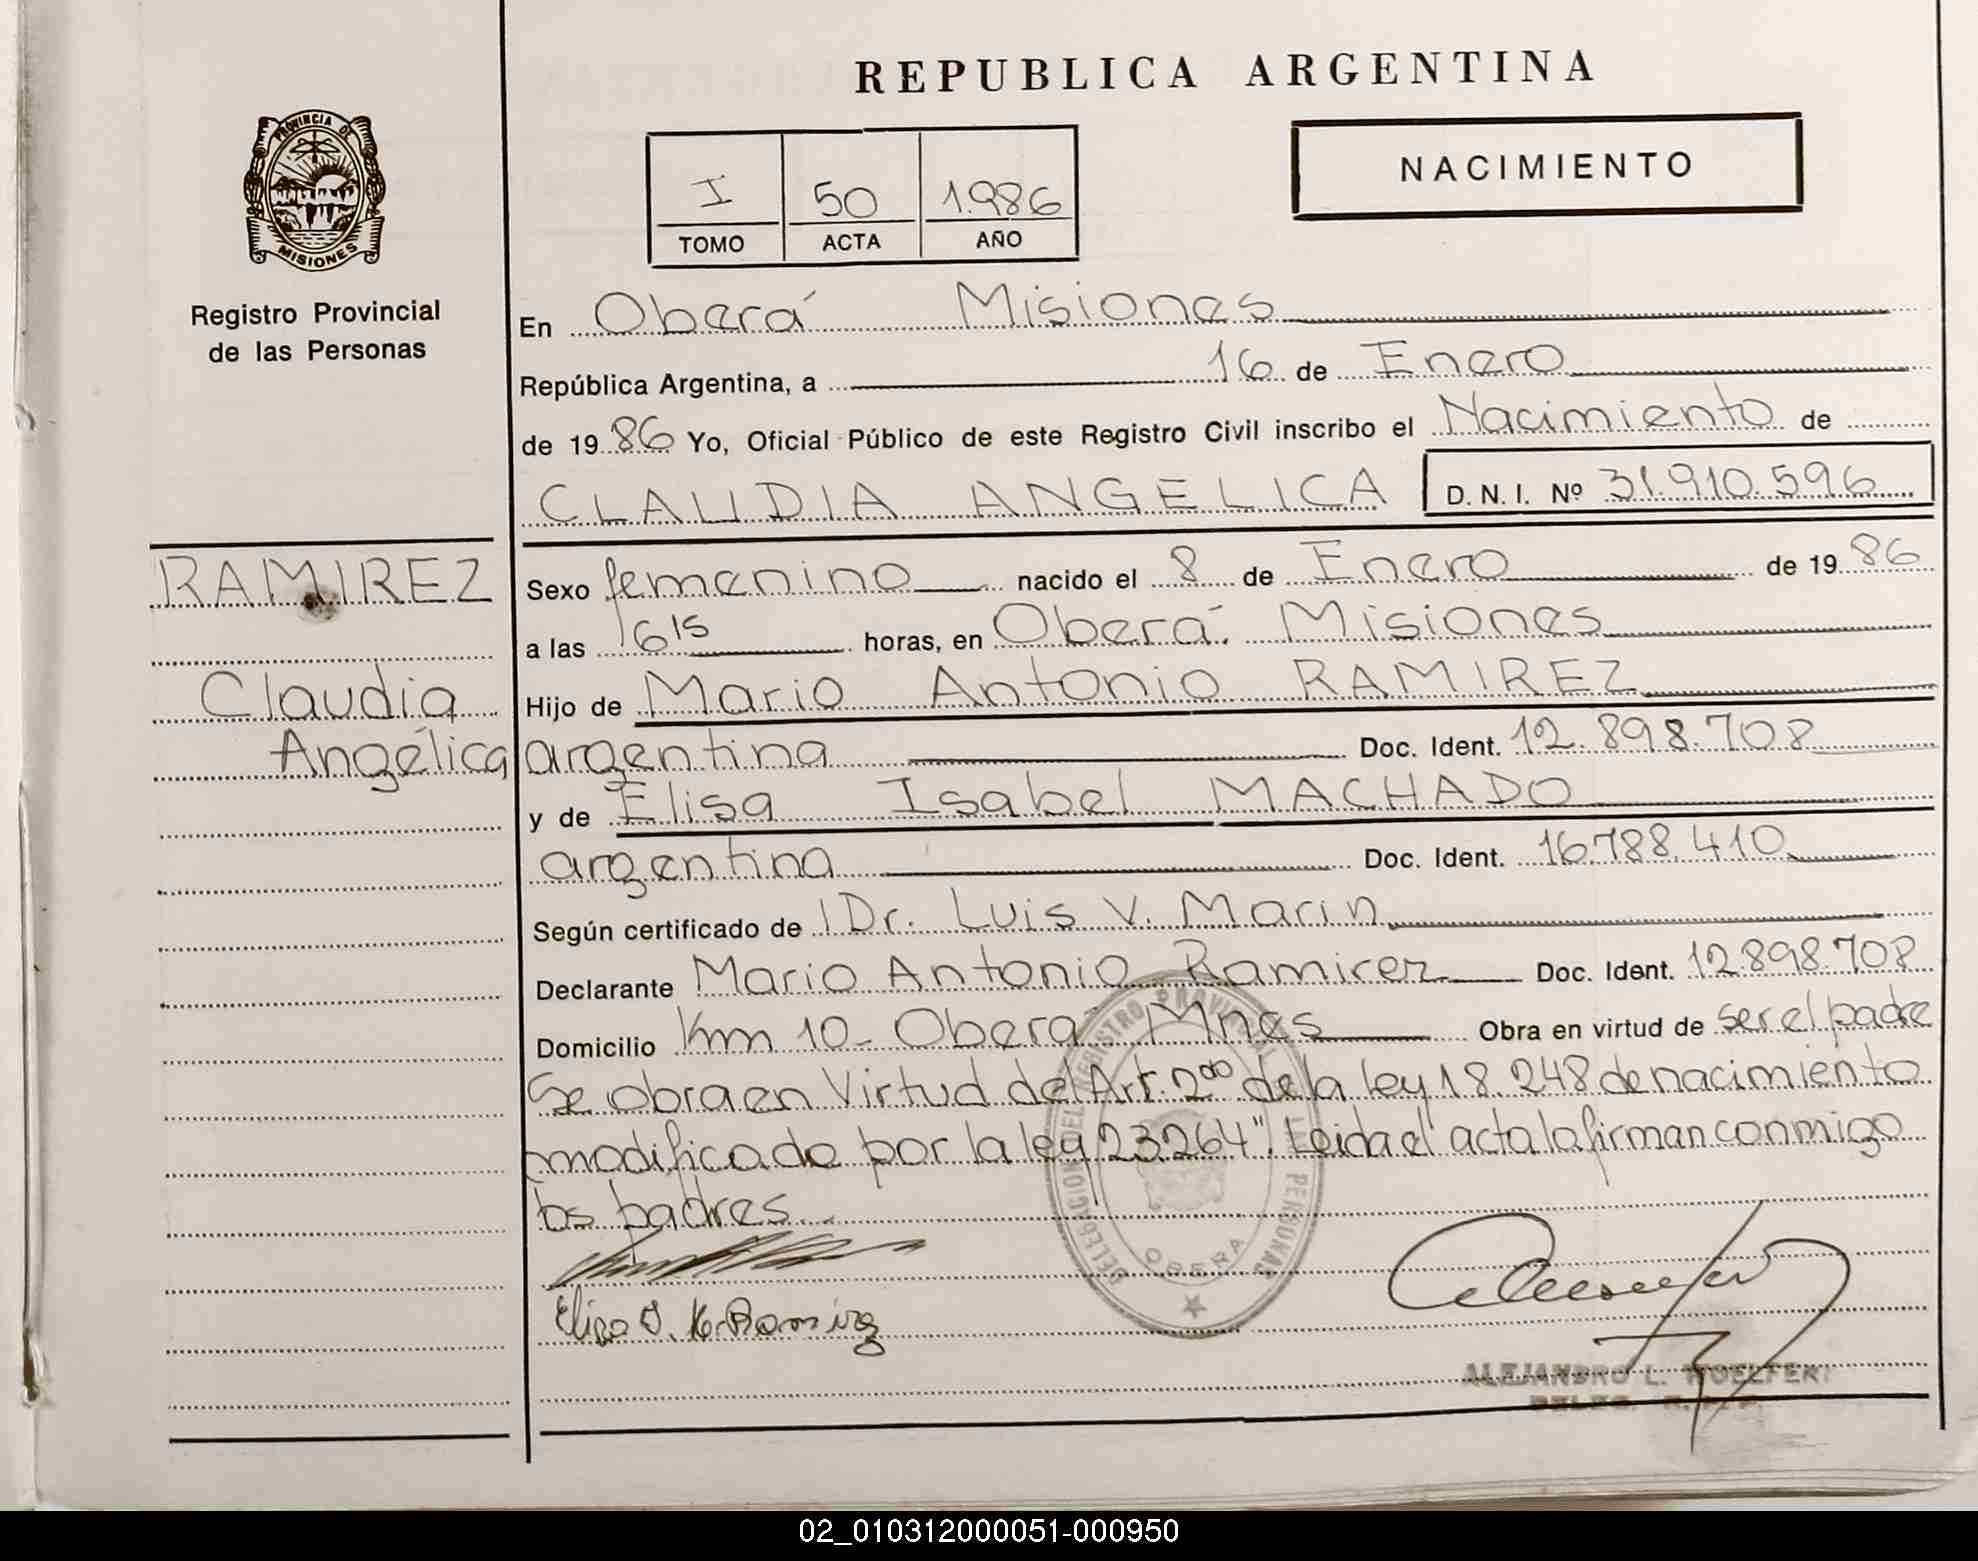 REPUBLICA ARGENTINA
PROVINCIA DE
MISIONES
Registro Provincial
de las Personas
I 50 1.986
TOMO ACTA AÑO
NACIMIENTO
En Oberá Misiones
República Argentina, a 16 de Enero
de 19 86 Yo, Oficial Público de este Registro Civil inscribo el Nacimiento de
CLAUDIA ANGELICA D. N. I. Nº 31.910.596
RAMIREZ
Claudia
Angélica
Sexo femenino nacido el 8 de Enero de 19 86
a las 16 15 horas, en Oberá Misiones
Hijo de Mario Antonio RAMIREZ
argentina Doc. Ident. 12.898.708
y de Elisa Isabel MACHADO
argentina Doc. Ident. 16.788.410
Según certificado de Dr. Luis V. Marin
Declarante Mario Antonio Ramirez Doc. Ident. 12.898.708
Domicilio Km 10 - Obera Mnes Obra en virtud de ser el padre
Se obra en Virtud del Art. 2do de la ley 18.248 de nacimiento
modificado por la ley 23.264". Leida el acta la firman conmigo
los padres.
DELEGACION DEL REGISTRO PROVINCIAL DE LAS PERSONAS
OBERA
Elisa I. M. Ramirez
ALEJANDRO L. WOELFERT
02_010312000051-000950